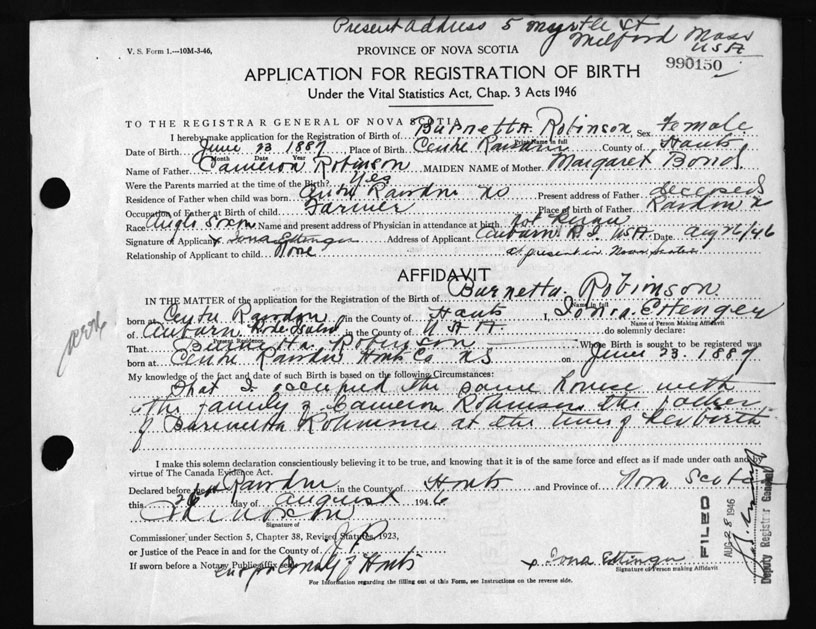 Present Address 5 Myrtle St
Milford Mass
USA
V. S. Form 1.—10M-3-46,
PROVINCE OF NOVA SCOTIA
990150
APPLICATION FOR REGISTRATION OF BIRTH
Under the Vital Statistics Act, Chap. 3 Acts 1946
TO THE REGISTRAR GENERAL OF NOVA SCOTIA
I hereby make application for the Registration of Birth of Burnetta Robinson, Sex Female
Print Name in full
Date of Birth June 23 1887 Place of Birth Centre Rawdon County of Hants
Month Date Year
Name of Father Cameron Robinson MAIDEN NAME of Mother Margaret Bond
Were the Parents married at the time of the Birth? Yes
Residence of Father when child was born Centre Rawdon NS Present address of Father deceased
Occupation of Father at Birth of child Farmer Place of birth of Father Rawdon
Race Anglo Saxon Name and present address of Physician in attendance at birth
Signature of Applicant x Iona Ettinger Address of Applicant Auburn R.I. USA Date Aug 26/46
Relationship of Applicant to child None at present in Nova Scotia
AFFIDAVIT
IN THE MATTER of the application for the Registration of Birth of Burnetta Robinson
Name in full
born at Centre Rawdon in the County of Hants, I Iona Ettinger
Name of Person Making Affidavit
of Auburn Rode Island in the County of USA do solemnly declare:
Present Residence
That Burnetta Robinson Whose Birth is sought to be registered was
born at Centre Rawdon Hants Co NS on June 23. 1887
My knowledge of the fact and date of such Birth is based on the following Circumstances:
That I occupied the same house with
the family of Cameron Robinson the father
of Barinetta Robinson at the time of her birth
I make this solemn declaration conscientiously believing it to be true, and knowing that it is of the same force and effect as if made under oath and by
virtue of The Canada Evidence Act.
Declared before me at Rawdon in the County of Hants and Province of Nova Scotia
this 26 day of August 1946
Signature of
Commissioner under Section 5, Chapter 38, Revised Statutes, 1923,
or Justice of the Peace in and for the County of J.P.
If sworn before a Notary Public affix seal
County of Hants
x Iona Ettinger
Signature of Person making Affidavit
For Information regarding the filling out of this Form, see Instructions on the reverse side.
FILED
AUG 28 1946
Deputy Registrar General